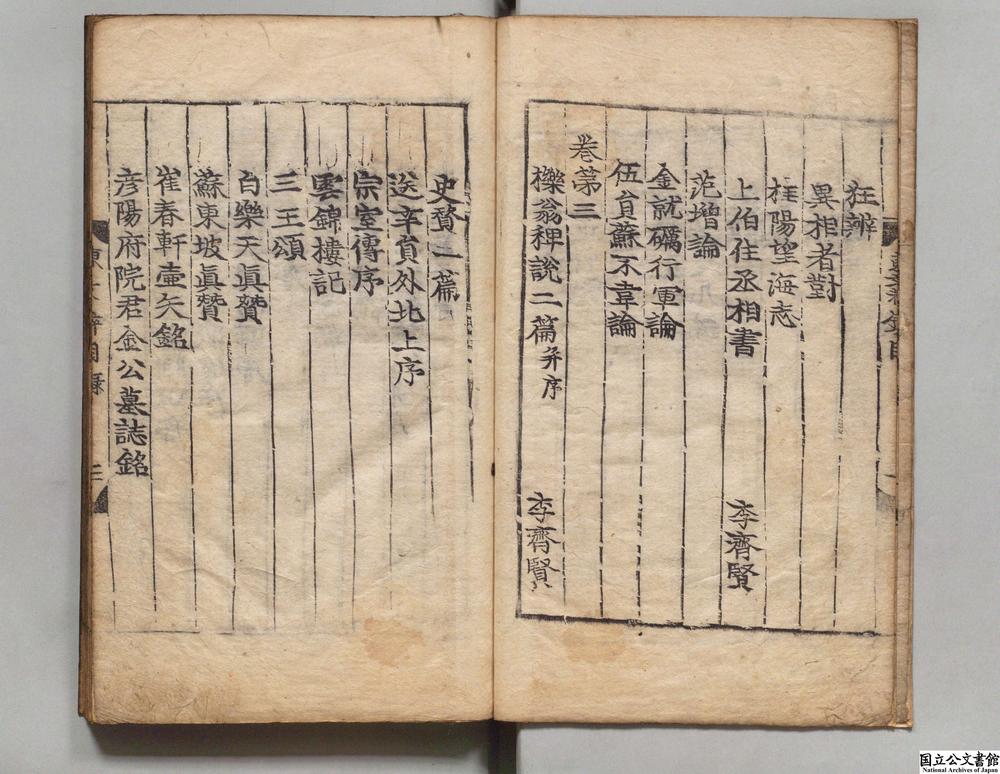 狂辨
異相者對
桂陽望海志
上伯住丞相書 李齊賢
范增論
金就礪行軍論
伍員蘇不韋論
卷第三
櫟翁稗說二篇并序 李齊賢
史贊一篇
送辛員外北上序
宗室傳序
雲錦樓記
三王頌
白樂天眞贊
蘇東坡眞贊
崔春軒壷矢銘
彦陽府院君金公墓誌銘
目錄
二
国立公文書館
National Archives of Japan